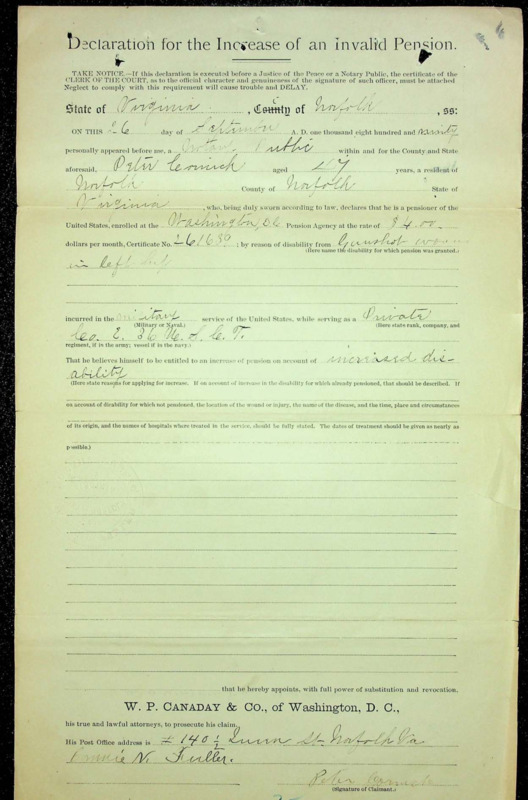 Declaration for the Increase of an Invalid Pension.
TAKE NOTICE.—If this declaration is executed before a Justice of the Peace or a Notary Public, the certificate of the
CLERK OF THE COURT, as to the official character and genuineness of the signature of such officer, must be attached
Neglect to comply with this requirement will cause trouble and DELAY.
State of Virginia, County of Norfolk, ss:
ON THIS 26 day of A. D. one thousand eight hundred and ninety
personally appeared before me, a Notary Public within and for the County and State
aforesaid, Peter aged 47 years, a resident of
Norfolk County of Norfolk State of
Virginia, who, being duly sworn according to law, declares that he is a pensioner of the
United States, enrolled at the Washington, D.C. Pension Agency at the rate of $4.00
dollars per month, Certificate No. ; by reason of disability from Gunshot wound
(Here name the disability for which pension was granted.)
in left
incurred in the military service of the United States, while serving as a Private
(Military or Naval.) (Here state rank, company, and
Co. E. 36 U. S. C. T.
regiment, if in the army; vessel if in the navy.)
That he believes himself to be entitled to an increase of pension on account of increased dis-
ability
(Here state reasons for applying for increase. If on account of increase in the disability for which already pensioned, that should be described. If
on account of disability for which not pensioned, the location of the wound or injury, the name of the disease, and the time, place and circumstances
of its origin, and the names of hospitals where treated in the service, should be fully stated. The dates of treatment should be given as nearly as
possible.)
that he hereby appoints, with full power of substitution and revocation,
W. P. CANADAY & CO., of Washington, D. C.,
his true and lawful attorneys, to prosecute his claim.
His Post Office address is 140 1/2 St. Norfolk Va
N. Fuller.
Peter
(Signature of Claimant.)